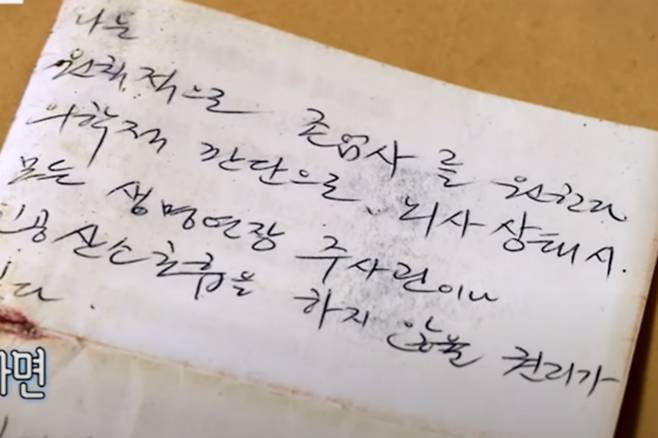 나는
원칙적으로 존엄사를 원한다
의학적 판단으로 뇌사상태시.
모든 생명연장 주사린이나
인공산소호흡을 하지 않을 권리가
있다.
라면